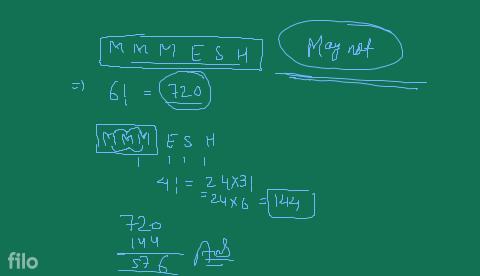 M M M E S H
May not
=> 6! = 720
M M M E S H
1 1 1 1
4! = 24 x 3!
= 24 x 6 = 144
720
144
576 Ans
filo